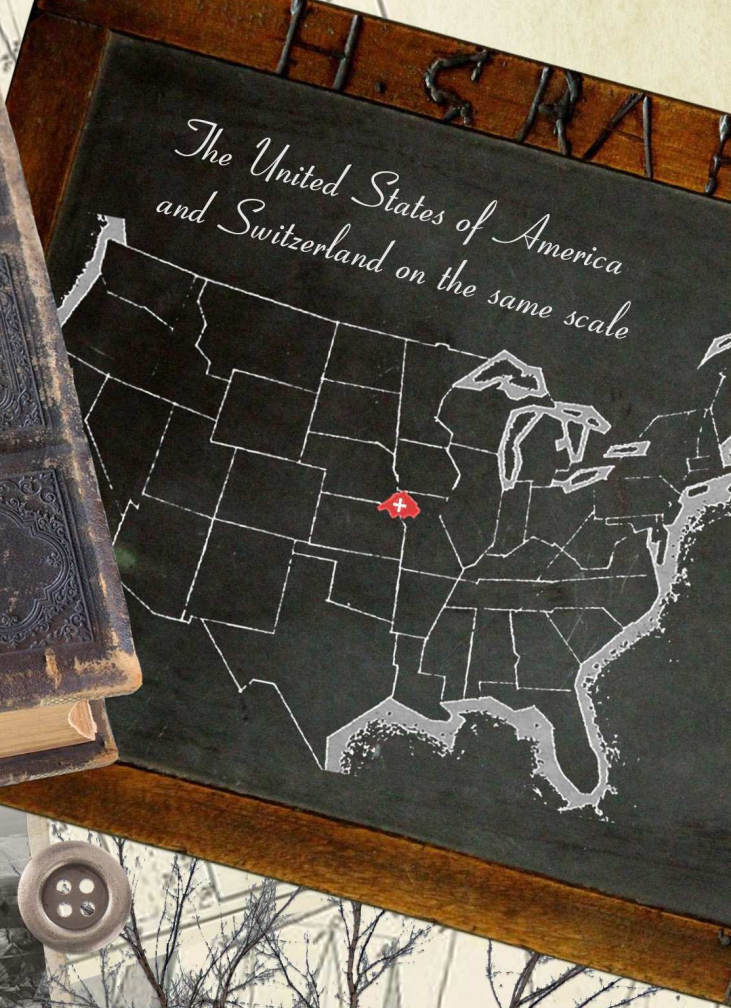 H. GRA
The United States of America
and Switzerland on the same scale